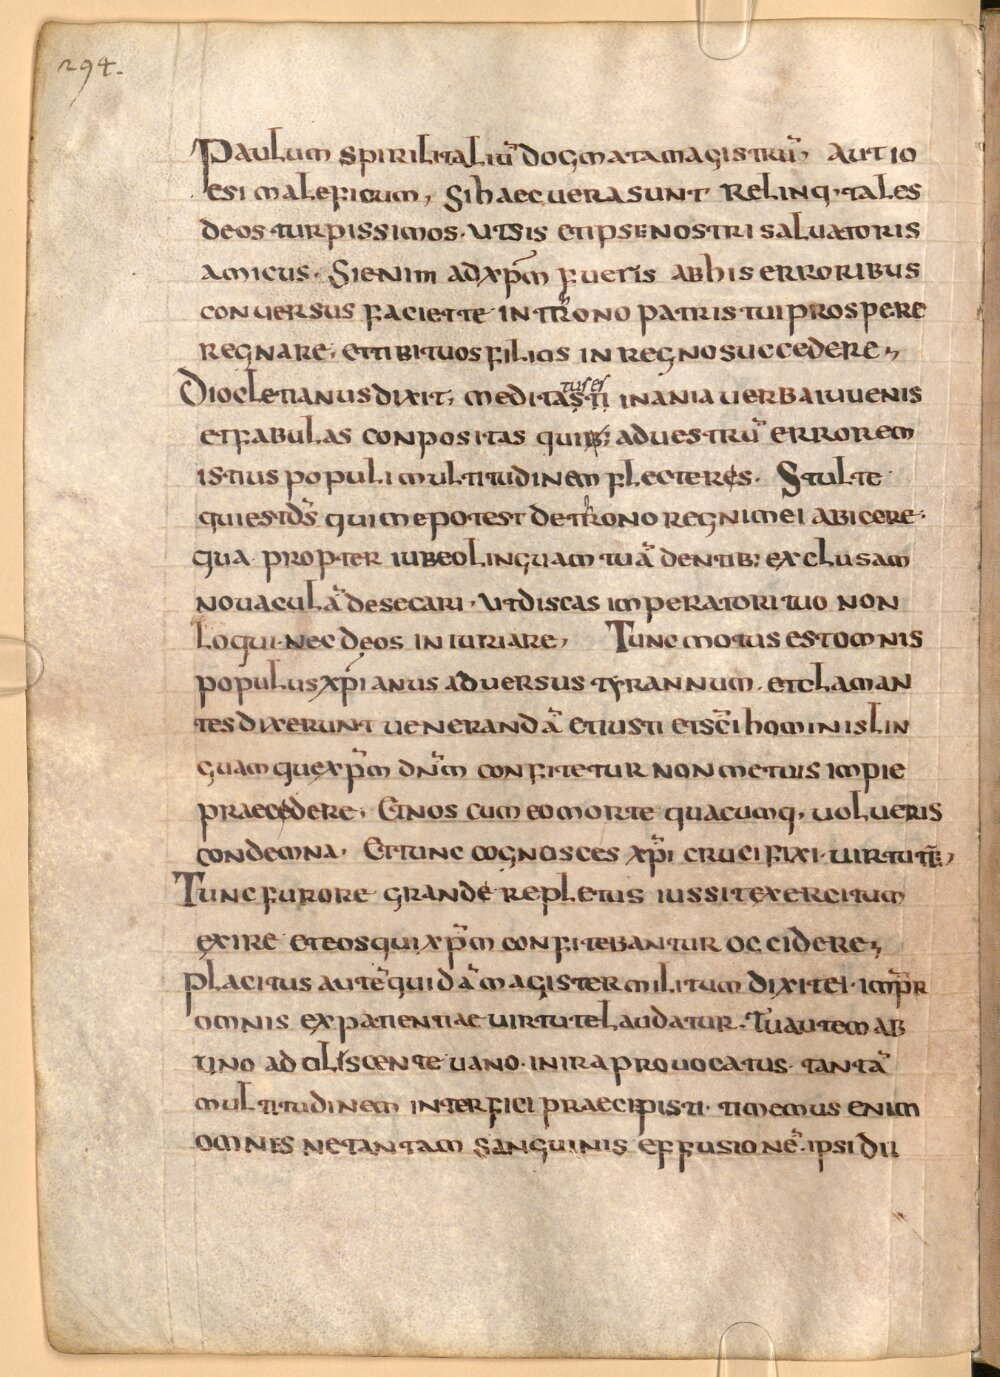 294.
Paulum spirilitaliū dogmata magistrū, aut io
esi maleficum, Si haec uera sunt relinq, tales
deos turpissimos. Ut sis et ipse nostri saluatoris
amicus. Si enim ad xp̄m fueris ab his erroribus
conuersus faciet te in throno patris tui prospere
regnare, et tibi tuos filios in regno succedere,
Diocletianus dixit, meditasti inania uerba iuuenis
tus es
et fabulas conpositas quib; ad uestrū errorem
istius populi multitudinem flecteres. Stulte
qui est d̄s qui me potest de throno regni mei abicere.
qua propter iubeo linguam tuā dentib; exclusam
nouaculā desecari. Ut discas imperatori tuo non
loqui nec deos iniuriare, Tunc motus est omnis
populus xp̄ianus aduersus tyrannum. et claman
tes dixerunt uenerandā et iusti et sc̄i hominis lin
guam que xp̄m dn̄m confitetur non metuis impie
praecedere, Et nos cum eo morte quacumq, uolueris
condemna. Et tunc cognosces xp̄i crucifixi uirtutē,
Tunc furore grande repletus iussit exercitum
exire et eos qui xp̄m confitebantur occidere,
Placitus autē quidā magister militum dixit ei. imp̄r
omnis ex patientiae uirtute laudatur. Tu autem ab
uno adoliscente uano. in ira prouocatus tantā
multitudinem interfici praecepisti. timemus enim
omnes ne tantam sanguinis effusionē. ipsi dii